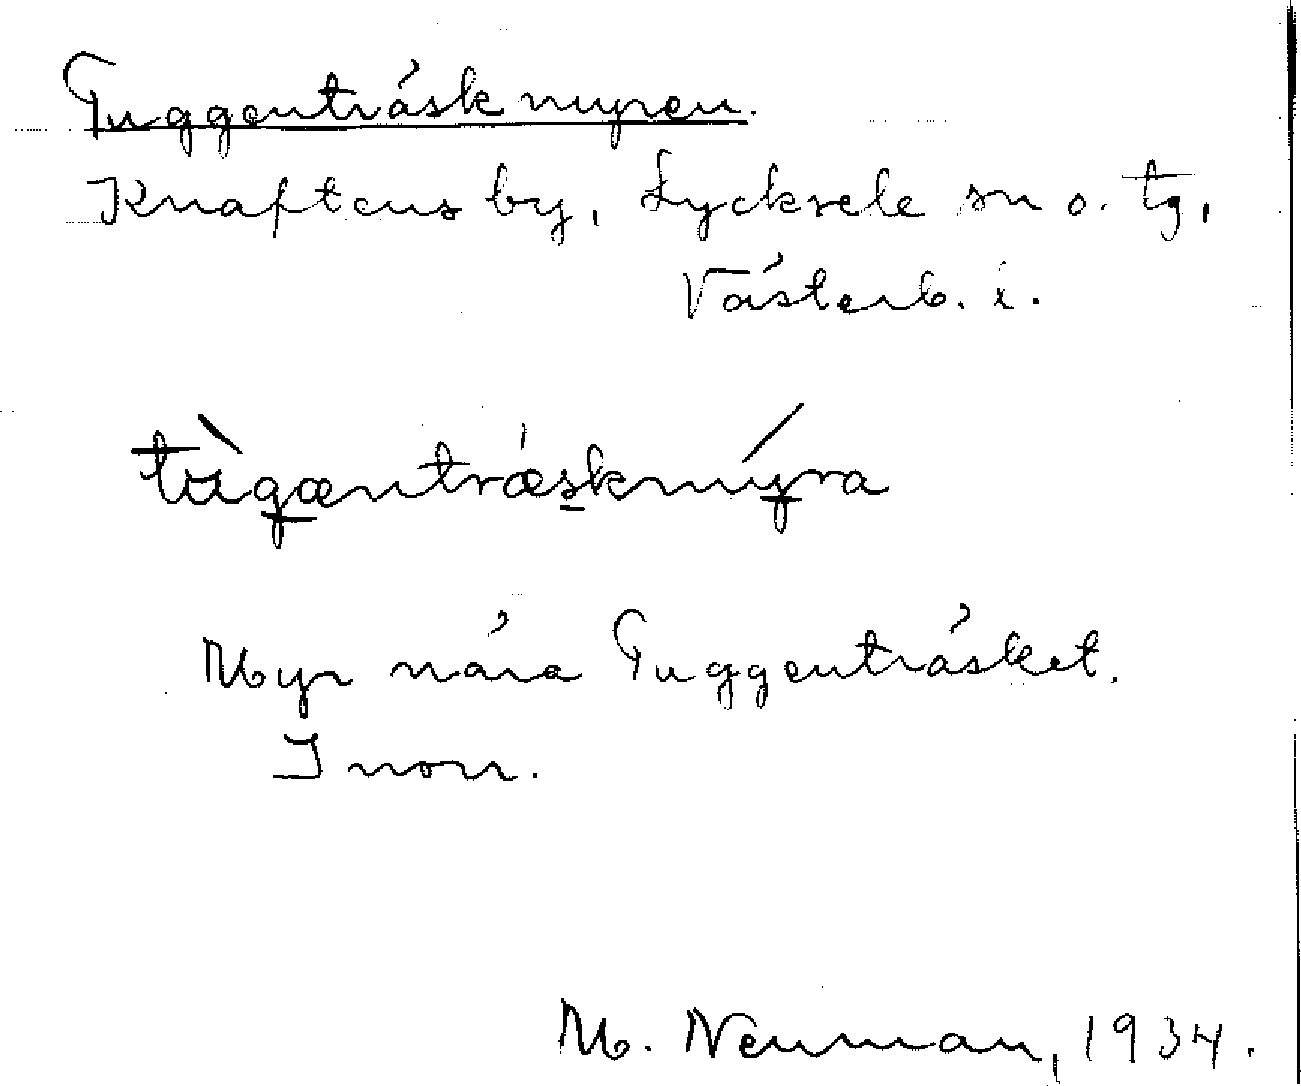 Tuggenträskmyren.
Knaftens by, Lycksele sn o. tg,
Västerb. l.
tùgæntrǽskmýra
Myr nära Tuggenträsket.
I norr.
M. Neuman, 1934.